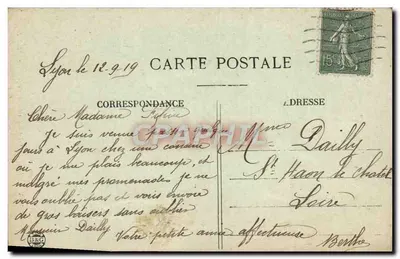 Lyon le 12-9-19
CARTE POSTALE
CORRESPONDANCE
ADRESSE
Chère Madame
Je suis venue
jours à Lyon chez une cousine
où je me plais beaucoup, et
malgré mes promenades je ne
vous oublie pas et vous envoie
de gros baisers sans oublier
Monsieur Dailly
Votre petite amie affectueuse
Berthe
Mme Dailly
St Haon le Chatel
Loire
15c
CARTE POSTALE